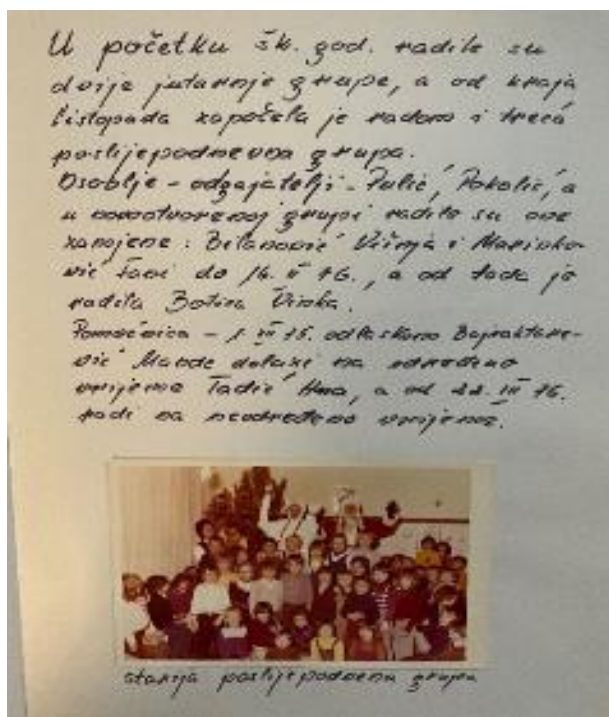 U početku šk. god. radile su
dvije jutarnje grupe, a od kraja
listopada započela je radom i treća
poslijepodnevna grupa.
Osoblje - odgajatelji - Pulić, Pokolić, a
u novootvorenoj grupi radile su one
zamjene: Višnja i Marinko-
vić do 16. II 76., a od tada je
radila Višnja.
Pomoćnica - 1. III 75. odlaskom Bajraktare-
vić Mande dolazi na određeno
vrijeme Tadić Ana, a od 22. III 76.
radi na neodređeno vrijeme.
starija poslijepodnevna grupa